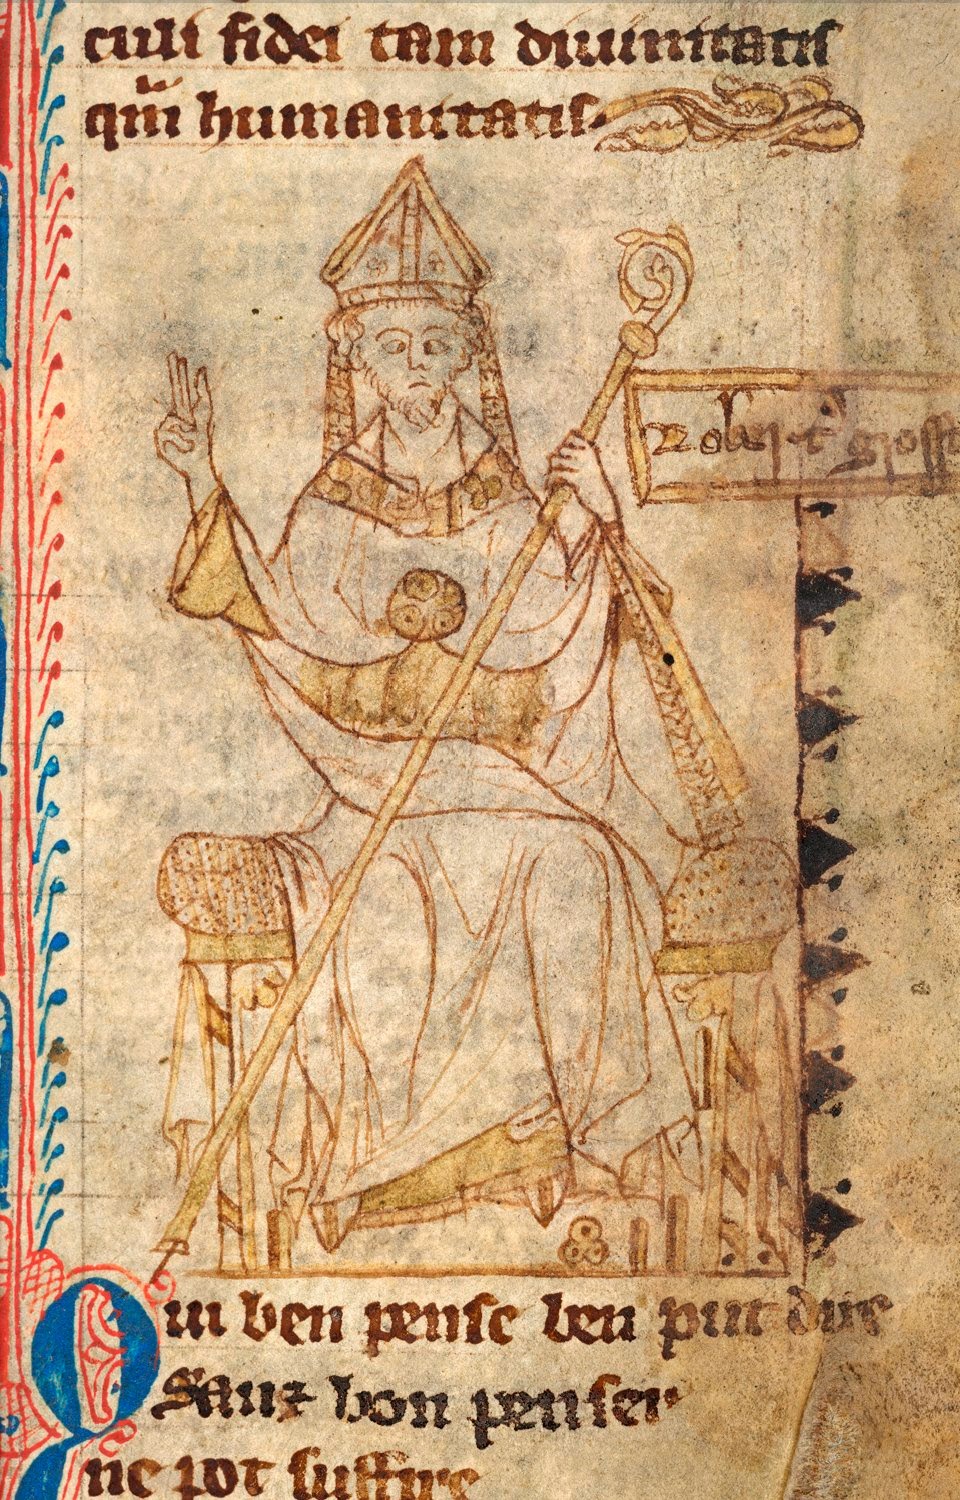 culi fidei tam diuinitatis
qm̄ humanitatis.
Rob't' grosse
Qui ben pense ben puit dire
Sanz bon penser
ne pot suffire